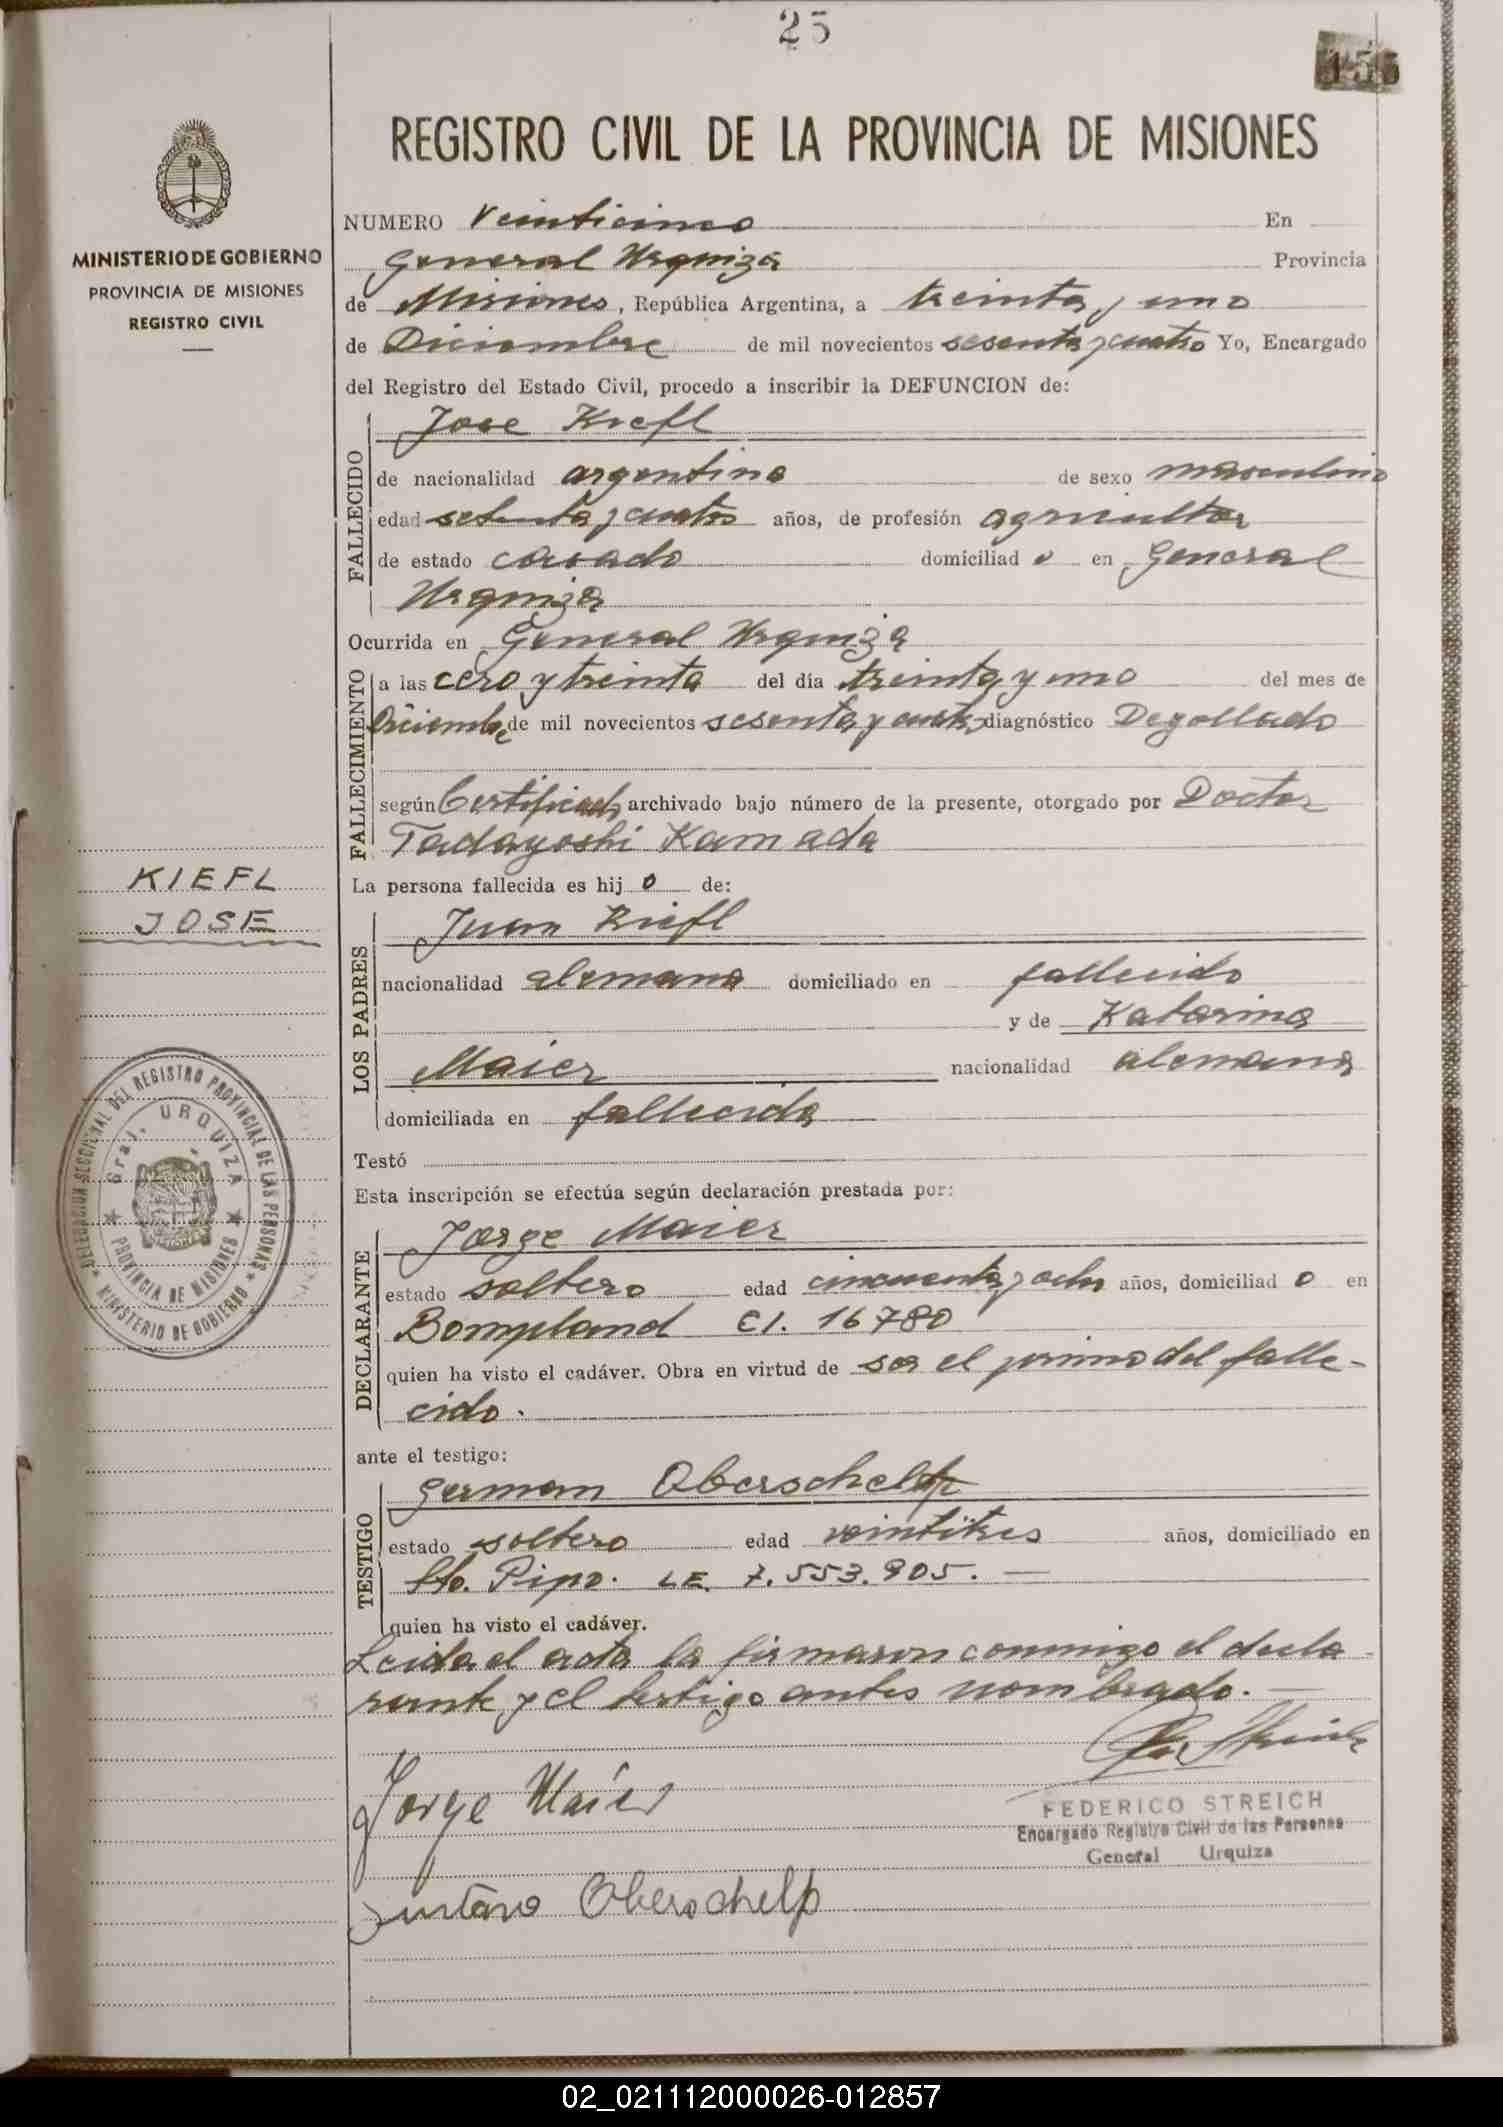 25
155
REGISTRO CIVIL DE LA PROVINCIA DE MISIONES
MINISTERIO DE GOBIERNO
PROVINCIA DE MISIONES
REGISTRO CIVIL
NUMERO Veinticinco En
General Urquiza Provincia
de Misiones, República Argentina, a treinta y uno
de Diciembre de mil novecientos sesenta y cuatro Yo, Encargado
del Registro del Estado Civil, procedo a inscribir la DEFUNCION de:
FALLECIDO
Jose Kiefl
de nacionalidad argentino de sexo masculino
edad setenta y cuatro años, de profesión agricultor
de estado casado domiciliad o en General
Urquiza
Ocurrida en General Urquiza
FALLECIMIENTO
a las cero y treinta del día treinta y uno del mes de
Diciembre de mil novecientos sesenta y cuatro diagnóstico Degollado
según Certificado archivado bajo número de la presente, otorgado por Doctor
Tadayoshi Kamada
KIEFL
JOSE
La persona fallecida es hij o de:
LOS PADRES
Juan Kiefl
nacionalidad alemana domiciliado en fallecido
y de Katarina
Maier nacionalidad alemana
domiciliada en fallecida
Testó
DELEGACION SECCIONAL DEL REGISTRO PROVINCIAL DE LAS PERSONAS
MINISTERIO DE GOBIERNO
Gral. URQUIZA
PROVINCIA DE MISIONES
Esta inscripción se efectúa según declaración prestada por:
DECLARANTE
Jorge Maier
estado soltero edad cincuenta y ocho años, domiciliad o en
Bompland CI. 16780
quien ha visto el cadáver. Obra en virtud de ser el primo del falle-
cido.
ante el testigo:
TESTIGO
German Oberschelp
estado soltero edad veintitres años, domiciliado en
Pto. Pipo. LE. 7.553.905.—
quien ha visto el cadáver.
Leida el acta la firmaron conmigo el decla-
rante y el testigo antes nombrado.—
Jorge Maier
FEDERICO STREICH
Encargado Registro Civil de las Personas
General Urquiza
Oberschelp
02_021112000026-012857